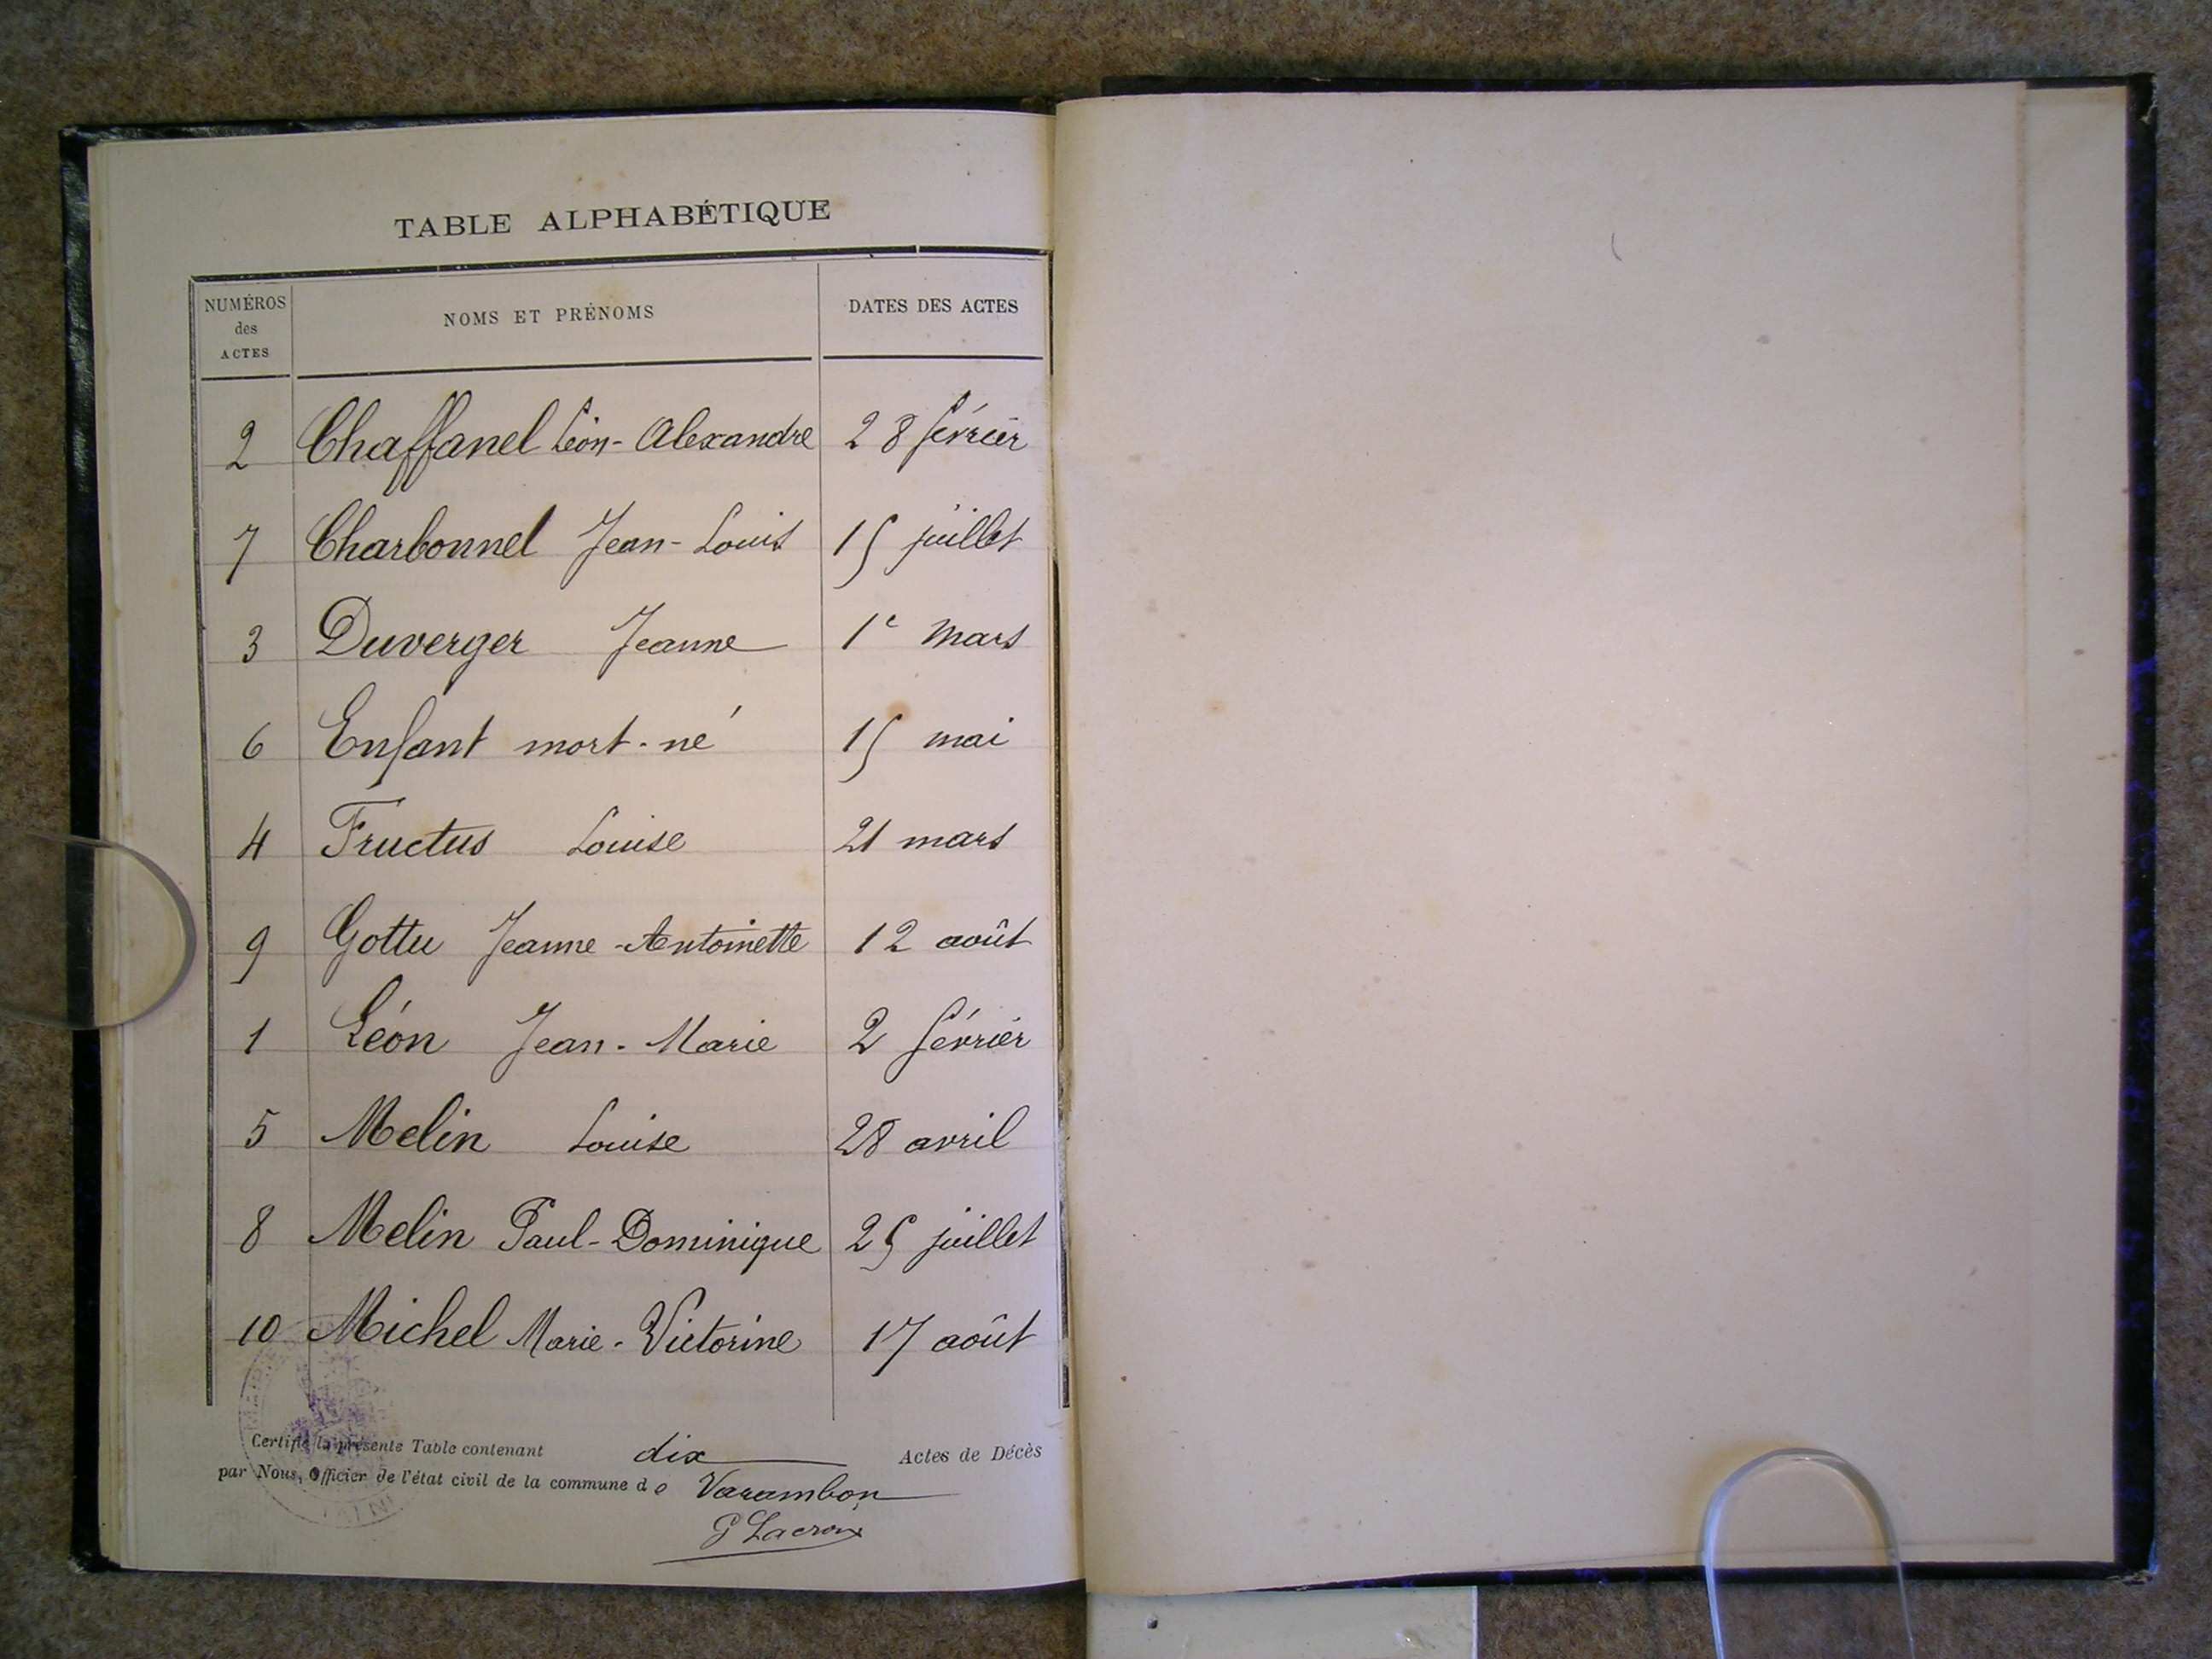 TABLE ALPHABÉTIQUE
NUMÉROS des ACTES NOMS ET PRÉNOMS DATES DES ACTES
2 Chaffanel Léon-Alexandre 28 février
7 Charbonnel Jean-Louis 15 juillet
3 Duverger Jeanne 1e mars
6 Enfant mort-né 15 mai
4 Fructus Louise 21 mars
9 Gottu Jeanne-Antoinette 12 août
1 Léon Jean-Marie 2 février
5 Melin Louise 28 avril
8 Melin Paul-Dominique 25 juillet
10 Michel Marie-Victorine 17 août
Certifié la présente Table contenant dix Actes de Décès
par Nous, Officier de l'état civil de la commune de Varambon
G Lacroix